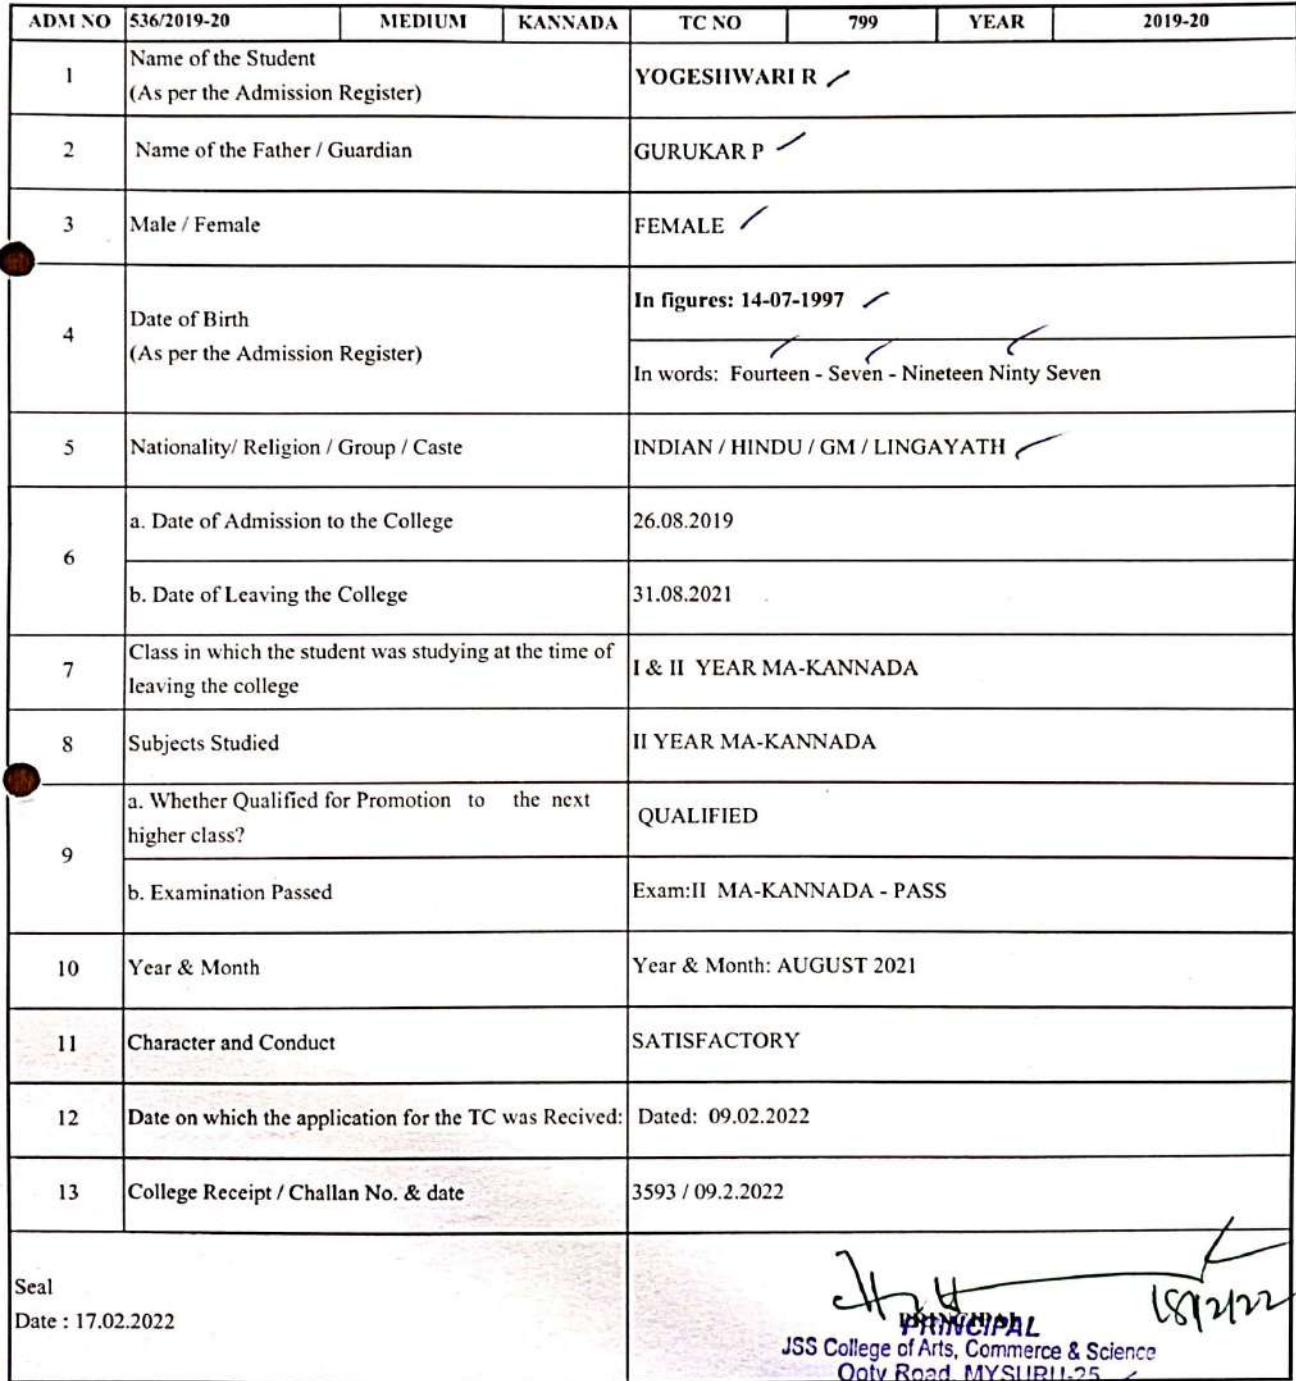 ADM NO 536/2019-20 MEDIUM KANNADA TC NO 799 YEAR 2019-20
1 Name of the Student
(As per the Admission Register) YOGESHWARI R
2 Name of the Father / Guardian GURUKAR P
3 Male / Female FEMALE
4 Date of Birth
(As per the Admission Register)
In figures: 14-07-1997
In words: Fourteen - Seven - Nineteen Ninty Seven
5 Nationality/ Religion / Group / Caste INDIAN / HINDU / GM / LINGAYATH
6 a. Date of Admission to the College 26.08.2019
b. Date of Leaving the College 31.08.2021
7 Class in which the student was studying at the time of
leaving the college I & II YEAR MA-KANNADA
8 Subjects Studied II YEAR MA-KANNADA
9 a. Whether Qualified for Promotion to the next
higher class? QUALIFIED
b. Examination Passed Exam:II MA-KANNADA - PASS
10 Year & Month Year & Month: AUGUST 2021
11 Character and Conduct SATISFACTORY
12 Date on which the application for the TC was Recived: Dated: 09.02.2022
13 College Receipt / Challan No. & date 3593 / 09.2.2022
Seal
Date : 17.02.2022
18/2/22
PRINCIPAL
PRINCIPAL
JSS College of Arts, Commerce & Science
Ooty Road, MYSURU-25